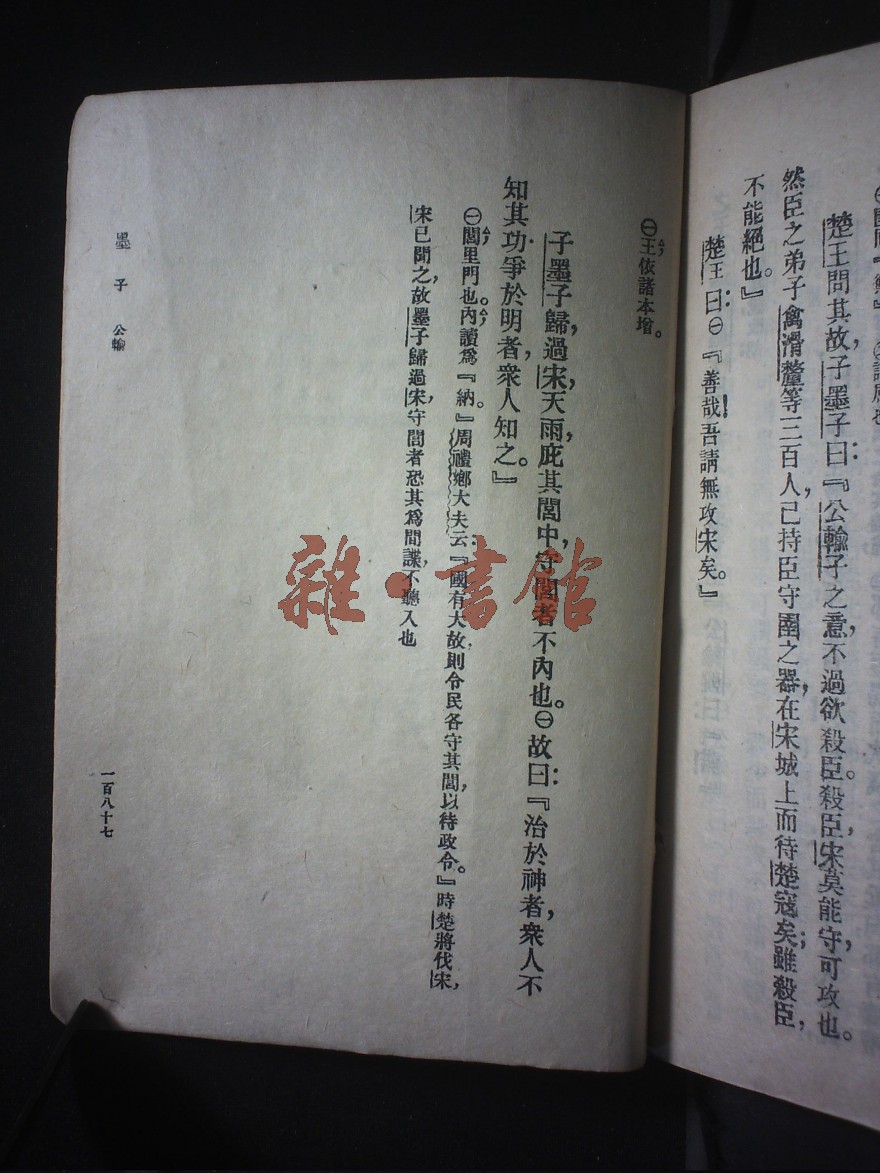 楚王問其故，子墨子曰：『公輸子之意，不過欲殺臣。殺臣，宋莫能守，可攻也。
然臣之弟子禽滑釐等三百人，已持臣守圉之器，在宋城上而待楚寇矣；雖殺臣，
不能絕也。』
楚王曰：㊀『善哉！吾請無攻宋矣。』
㊀王，依諸本增。
子墨子歸，過宋，天雨，庇其閭中，守閭者不內也。㊀故曰：『治於神者，衆人不
知其功，爭於明者，衆人知之。』
㊀閭，里門也。內，讀爲『納』。周禮鄉大夫云：『國有大故，則令民各守其閭，以待政令。』時楚將伐宋，
宋已聞之，故墨子歸過宋，守閭者恐其爲間諜，不聽入也
墨子 公輸
一百八十七
雜·書館